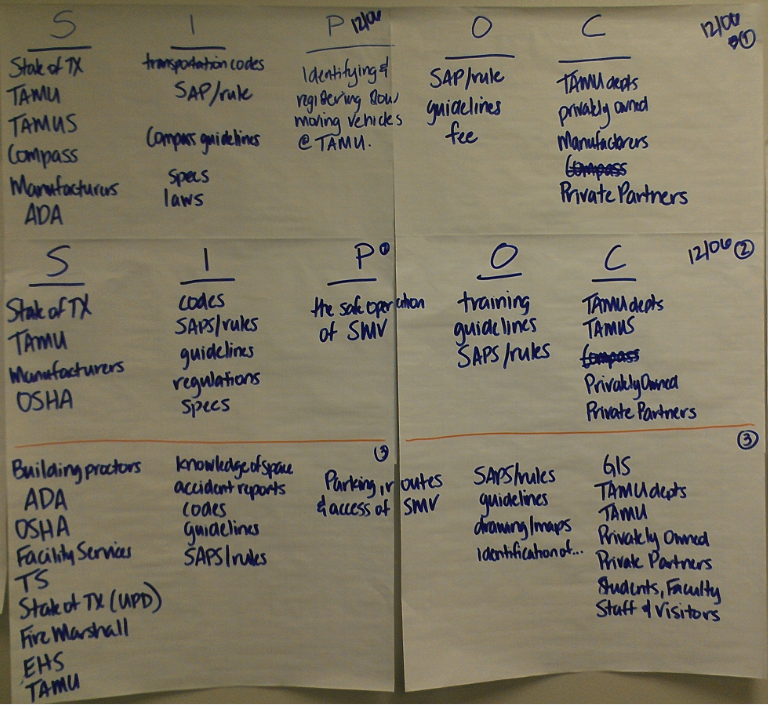 S I P 12/06 O C 12/06 ①
State of TX
TAMU
TAMUS
Compass
Manufacturers
ADA
transportation codes
SAP/rule
Compass guidelines
specs
laws
Identifying &
registering slow
moving vehicles
@ TAMU.
SAP/rule
guidelines
fee
TAMU depts
privately owned
Manufactorers
Compass
Private Partners
S I P ② O C 12/06 ②
State of TX
TAMU
Manufacturers
OSHA
codes
SAPS/rules
guidelines
regulations
specs
the safe operation
of SMV
training
guidelines
SAPS/rules
TAMU depts
TAMUS
Compass
Privately Owned
Private Partners
③ ③
Building proctors
ADA
OSHA
Facility Services
TS
State of TX (UPD)
Fire Marshall
EHS
TAMU
Knowledge of space
accident reports
codes
Guidelines
SAPS/rules
Parking, routes
& access of SMV
SAPS/rules
guidelines
drawing/maps
identification of...
GIS
TAMU depts
TAMU
Privately Owned
Private Partners
Students, Faculty
Staff & Visitors